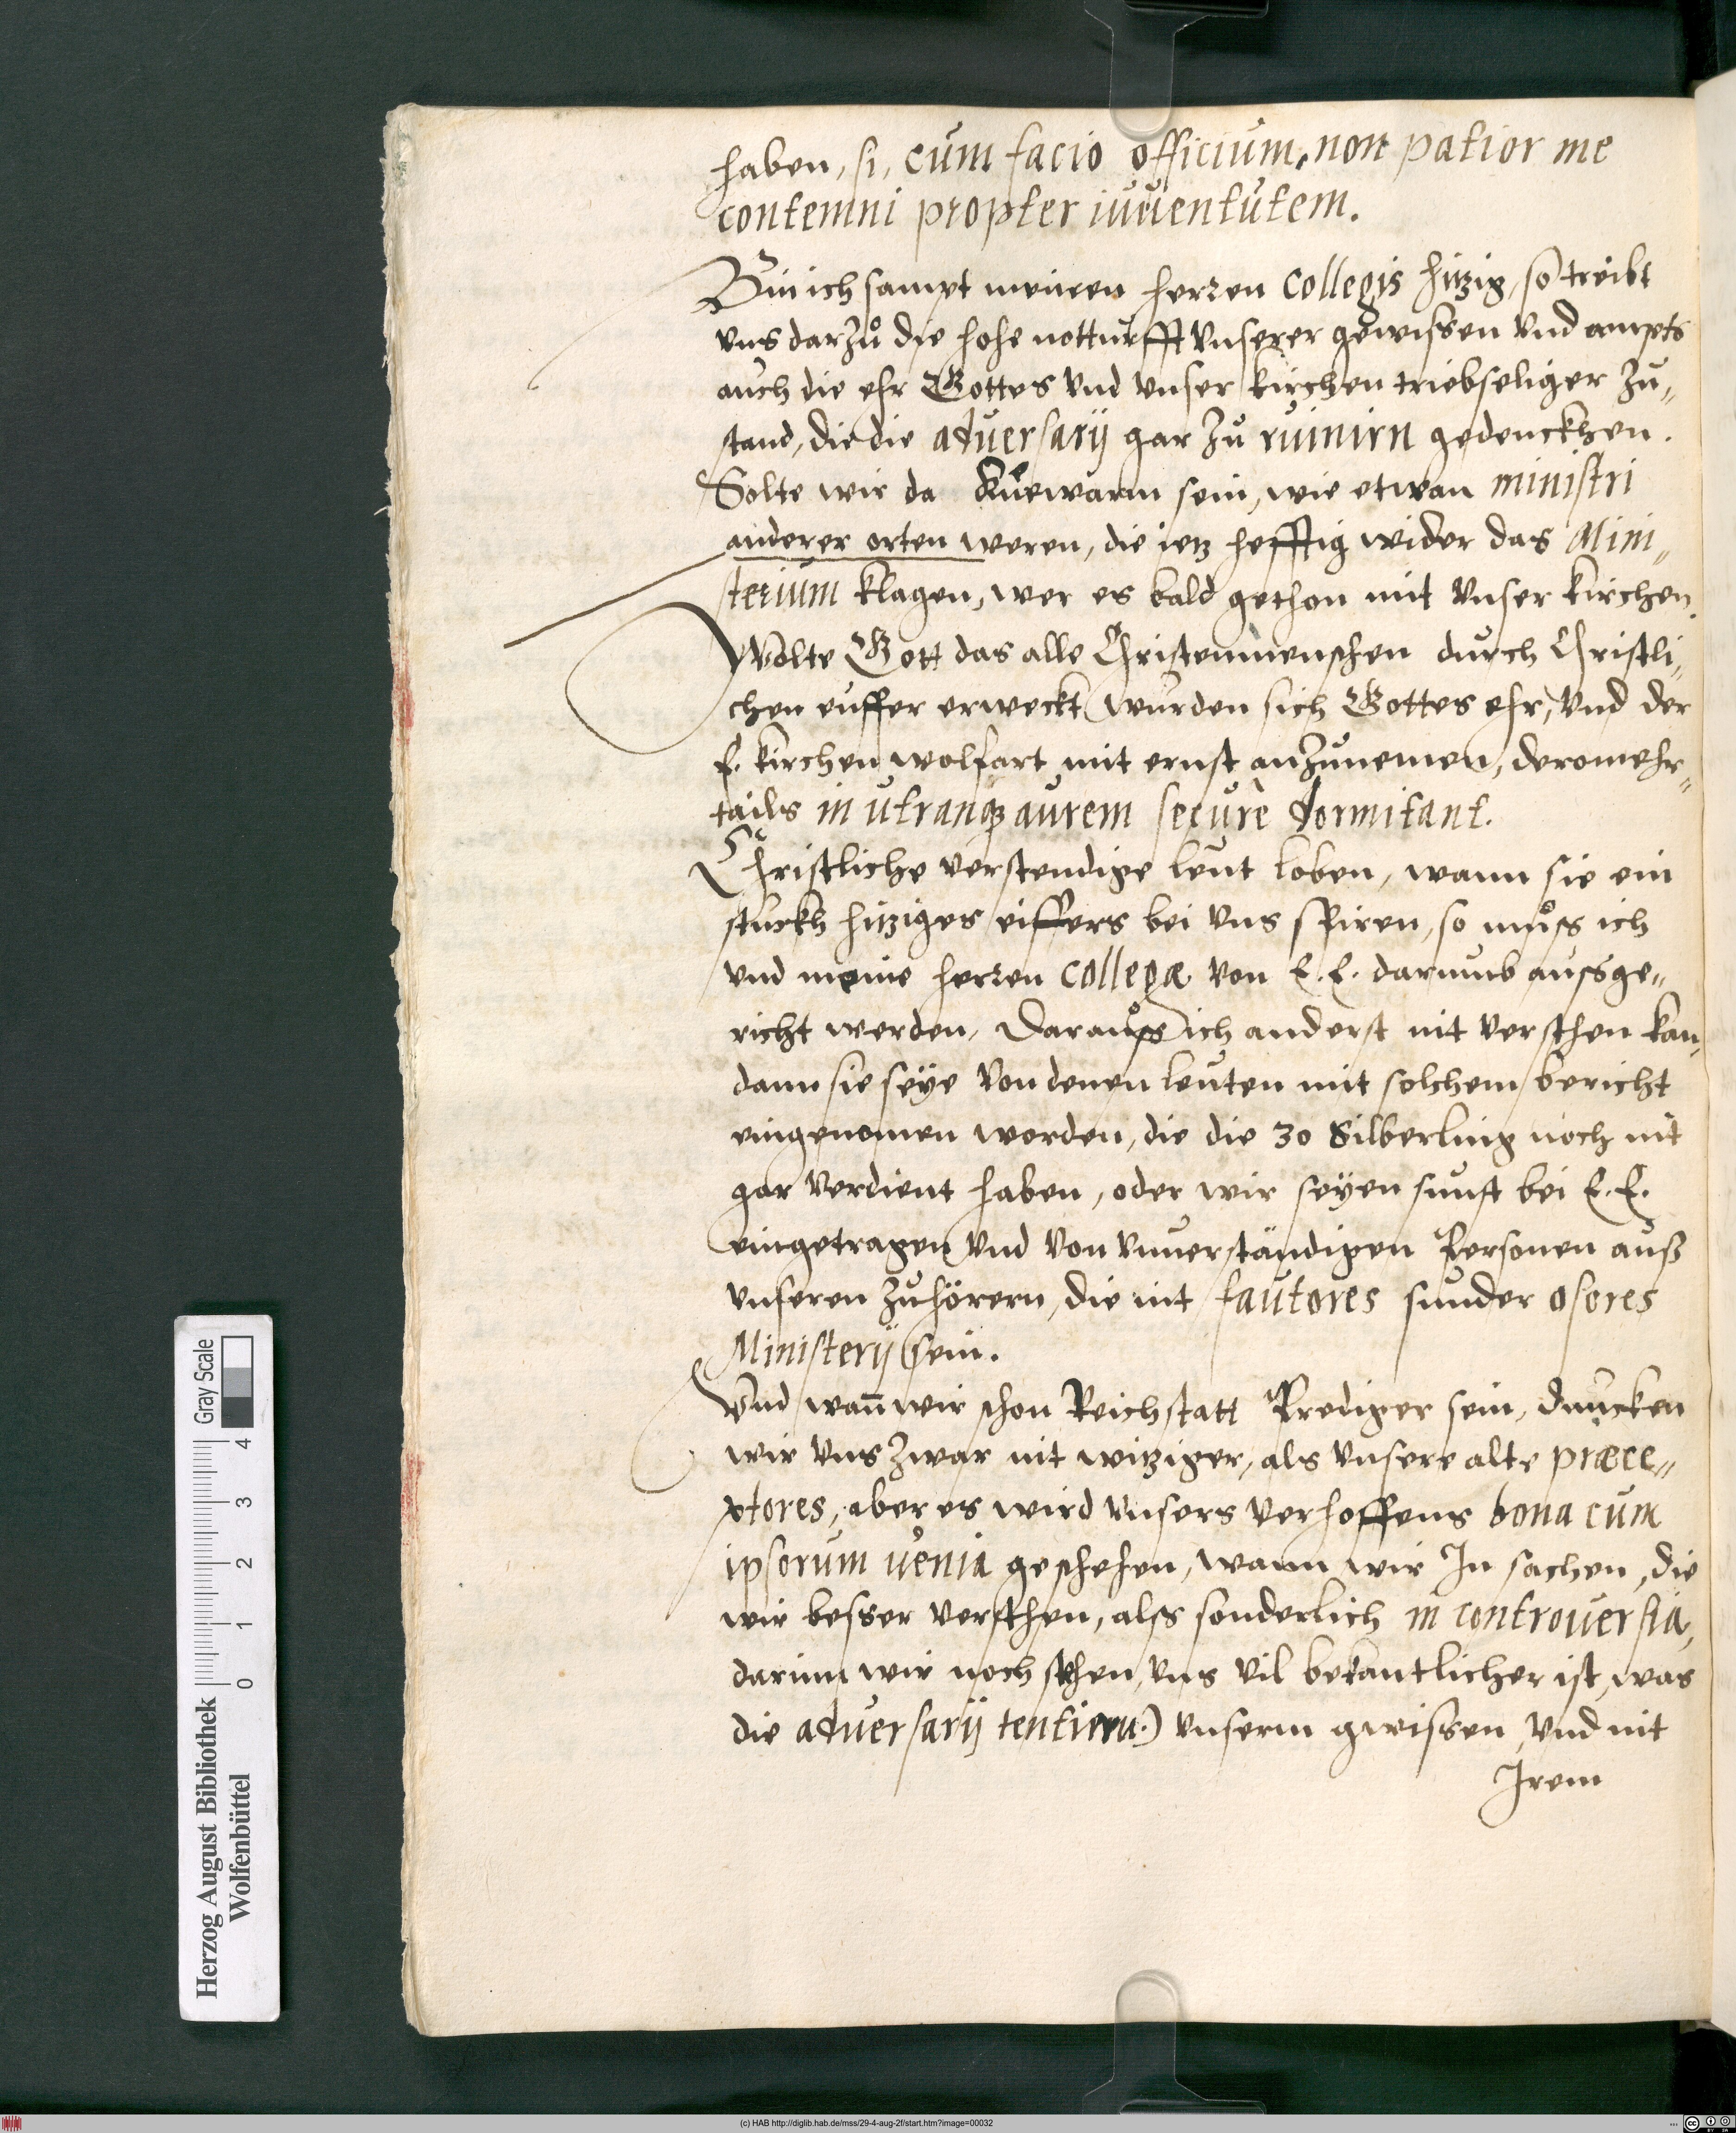 haben, si, cum facio officium, non patior me
contemni propter iuuentutem.
Bin ich sampt meinen herren Collegis hitzig, so treibt
vns darzů die hohe notturfft vnserer gewissen vnd ampts
auch die ehr Gottes vnd vnser kirchen triebseliger zu„
stand, die die aduersarij gar zu ruinirn gedenckhen.
Solte wir da kuewarm sein, wie etwan ministri
anderer orten weren, die ietz hefftig wider das Mini„
sterium klagen, wer es bald gethon mit vnser kirchen.
Wolte Gott das alle Christenmenschen durch Christli„
chen euffer erweckt wurden sich Gottes ehr, vnd der
h. kirchen wolfart mit ernst anzunemen, deromehr„
tails in utranq aurem securè dormitant.
Christliche verstendige leut loben, wann sie ein
stuckh hitziges eiffers bei vns spiren, so můss ich
vnd meine herren Collegæ von E. E. darumb aussge„
richt werden, Darauss ich anderst nit versthen kan,
dann sie seÿe von denen leuten mit solchem bericht
eingenomen worden, die die 30 Silberling noch nit
gar verdient haben, oder wir seÿen sunst bei E. E.
eingetragen vnd von vnuerständigen Personen auß
vnseren zuhörern, die nit fautores sunder osores
Ministerij sein.
Vnd wañ wir schon Reichstatt Prediger sein, duncken
wir vns zwar nit witziger, als vnsere alte præce„
ptores, aber es wird vnsers verhoffens bona cum
ipsorum uenia geschehen, wann wir In sachen, die
wir besser versthen, alss sonderlich in controuersia,
darinn wir noch sthen, vns vil bekantlicher ist, was
die aduersarij tentiern.) vnserm gwissen, vnd nit
Irem
Herzog August Bibliothek
Wolfenbüttel
0 1 2 3 4
Gray Scale
(c) HAB http://diglib.hab.de/mss/29-4-aug-2f/start.htm?image=00032